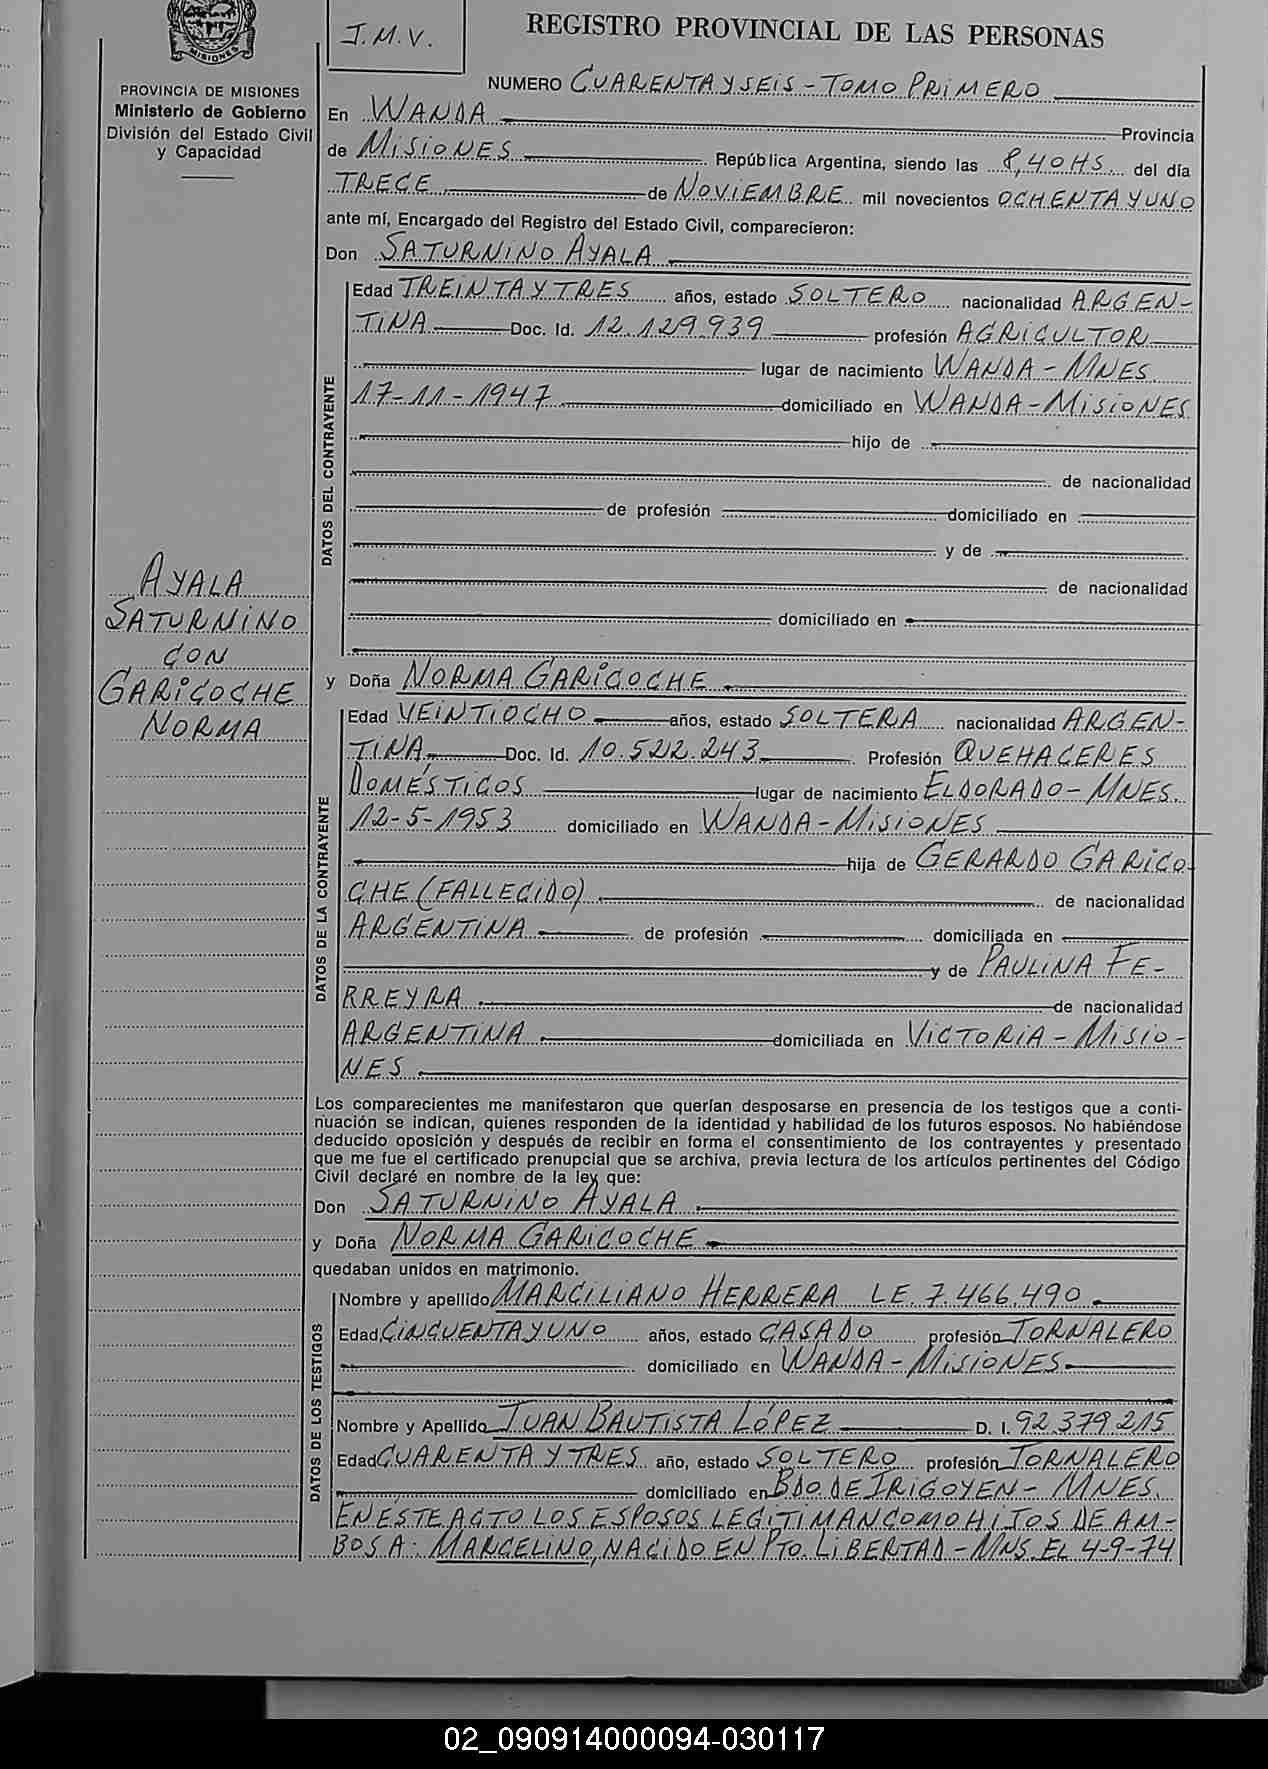 MISIONES
PROVINCIA DE MISIONES
Ministerio de Gobierno
División del Estado Civil
y Capacidad
AYALA
SATURNINO
CON
GARICOCHE
NORMA
J.M.V.
REGISTRO PROVINCIAL DE LAS PERSONAS
NUMERO CUARENTA Y SEIS - TOMO PRIMERO
En WANDA Provincia
de MISIONES República Argentina, siendo las 8,40 HS. del día
TRECE de NOVIEMBRE mil novecientos OCHENTA Y UNO
ante mí, Encargado del Registro del Estado Civil, comparecieron:
Don SATURNINO AYALA
DATOS DEL CONTRAYENTE
Edad TREINTA Y TRES años, estado SOLTERO nacionalidad ARGEN-
TINA Doc. Id. 12.129.939 profesión AGRICULTOR
lugar de nacimiento WANDA - MNES.
17-11-1947 domiciliado en WANDA - MISIONES
hijo de
de nacionalidad
de profesión domiciliado en
y de
de nacionalidad
domiciliado en
y Doña NORMA GARICOCHE
DATOS DE LA CONTRAYENTE
Edad VEINTIOCHO años, estado SOLTERA nacionalidad ARGEN-
TINA Doc. Id. 10.522.243 Profesión QUEHACERES
DOMÉSTICOS lugar de nacimiento ELDORADO - MNES.
12-5-1953 domiciliado en WANDA - MISIONES
hija de GERARDO GARICO-
CHE (FALLECIDO) de nacionalidad
ARGENTINA de profesión domiciliada en
y de PAULINA FE-
RREYRA de nacionalidad
ARGENTINA domiciliada en VICTORIA - MISIO-
NES
Los comparecientes me manifestaron que querían desposarse en presencia de los testigos que a conti-
nuación se indican, quienes responden de la identidad y habilidad de los futuros esposos. No habiéndose
deducido oposición y después de recibir en forma el consentimiento de los contrayentes y presentado
que me fue el certificado prenupcial que se archiva, previa lectura de los artículos pertinentes del Código
Civil declaré en nombre de la ley que:
Don SATURNINO AYALA
y Doña NORMA GARICOCHE
quedaban unidos en matrimonio.
DATOS DE LOS TESTIGOS
Nombre y apellido MARCILIANO HERRERA LE. 7.466.490
Edad CINCUENTA Y UNO años, estado CASADO profesión JORNALERO
domiciliado en WANDA - MISIONES
Nombre y Apellido JUAN BAUTISTA LÓPEZ D. I. 92.379.215
Edad CUARENTA Y TRES año, estado SOLTERO profesión JORNALERO
domiciliado en BDO. DE IRIGOYEN - MNES.
EN ÉSTE ACTO LOS ESPOSOS LEGITIMAN COMO HIJOS DE AM-
BOS A: MARCELINO, NACIDO EN PTO. LIBERTAD - MNS. EL 4-9-74
02_090914000094-030117